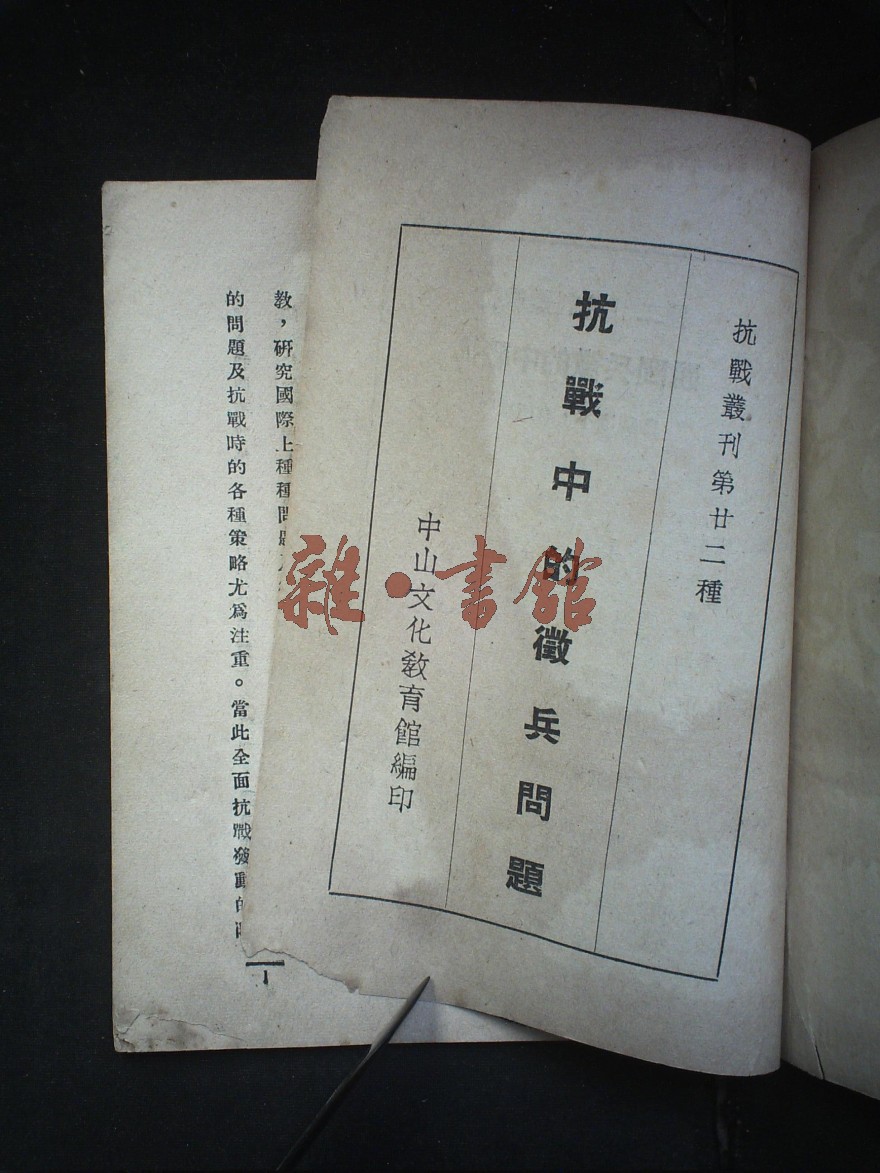 抗戰叢刊第廿二種
抗戰中的徵兵問題
中山文化教育館編印
教，研究國際上種種問題
的問題及抗戰時的各種策略尤為注重。當此全面抗戰發動的
1
雜·書館